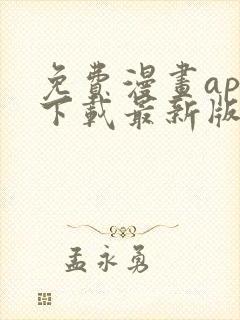 免費漫畫ap
下載最新版
孟永勇